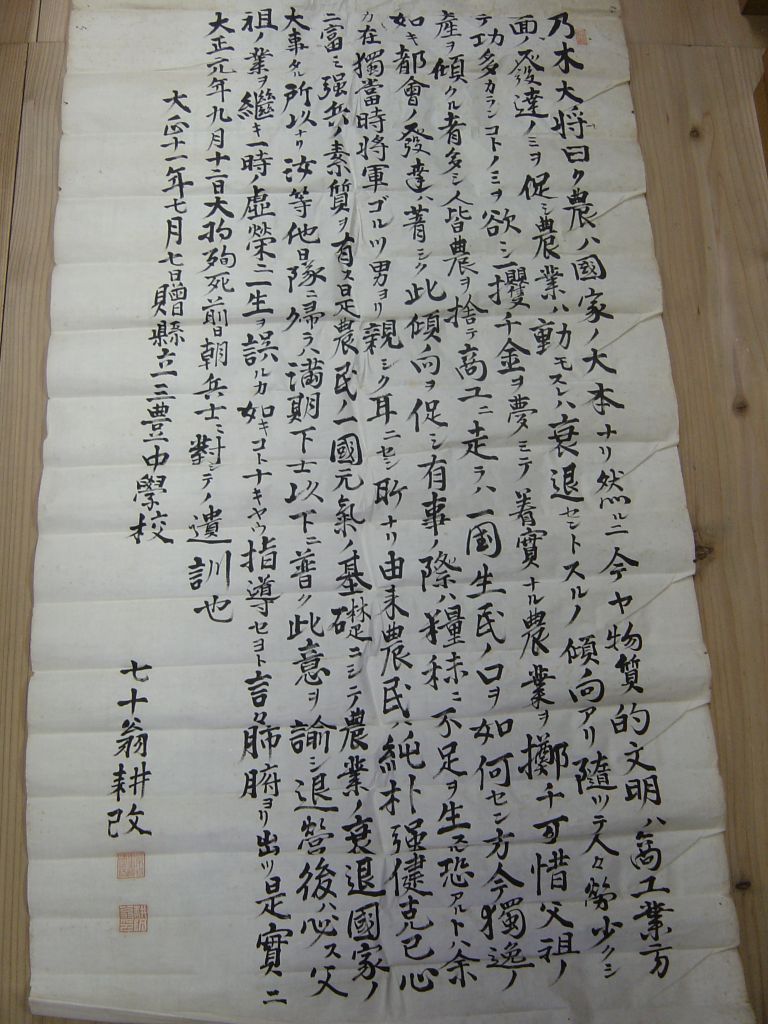 乃木大将曰ク農ハ國家ノ大本ナリ然ルニ今ヤ物質的文明ハ商工業方
面ノ發達ノミヲ促シ農業ハ動モスレハ衰退セントスルノ傾向アリ隨ツテ人々勞少クシ
テ功多カランコトノミヲ欲シ一攫千金ヲ夢ミテ着實ナル農業ヲ擲チ可惜父祖ノ
產ヲ傾クル者多シ人皆農ヲ捨テ商工ニ走ラハ一國生民ノ口ヲ如何セン方今獨逸ノ
如キ都會ノ發達ハ著シク此傾向ヲ促シ有事ノ際ハ糧秣ニ不足ヲ生ズ恐アルトハ余
カ在獨當時将軍ゴルツ男ヨリ親シク耳ニセシ所ナリ由来農民ハ純朴强健克己心
ニ富ミ强兵ノ素質ヲ有ス是農民ノ一國元氣ノ基礎ニシテ農業ノ衰退國家ノ
大事タル所以ナリ汝等他日隊ニ帰ラハ満期下士以下ニ普ク此意ヲ諭シ退營後ハ必ス父
祖ノ業ヲ繼キ一時ノ虚榮ニ一生ヲ誤ルカ如キコトナキヤウ指導セヨト言々肺腑ヨリ出ツ是實ニ
大正元年九月十二日大将殉死前日朝兵士ニ對シテノ遺訓也
大正十一年七月七日贈縣立三豊中學校
七十翁耕改